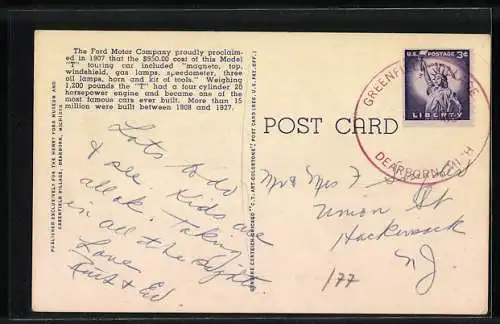 The Ford Motor Company proudly proclaim-
ed in 1907 that the $950.00 cost of this Model
"T" touring car included "magneto, top,
windshield, gas lamps, speedometer, three
oil lamps, horn and kit of tools." Weighing
1,200 pounds the "T" had a four cylinder 20
horsepower engine and became one of the
most famous cars ever built. More than 15
million were built between 1908 and 1927.
PUBLISHED EXCLUSIVELY FOR THE HENRY FORD MUSEUM AND
GREENFIELD VILLAGE, DEARBORN, MICHIGAN
Lots to do
& see. Kids are
all ok. Taking
in all the sights.
Love
& Ed.
POST CARD
U.S. POSTAGE 3¢
LIBERTY
DEARBORN MICH
Mr & Mrs F
Union St
Hackensack
NJ
177